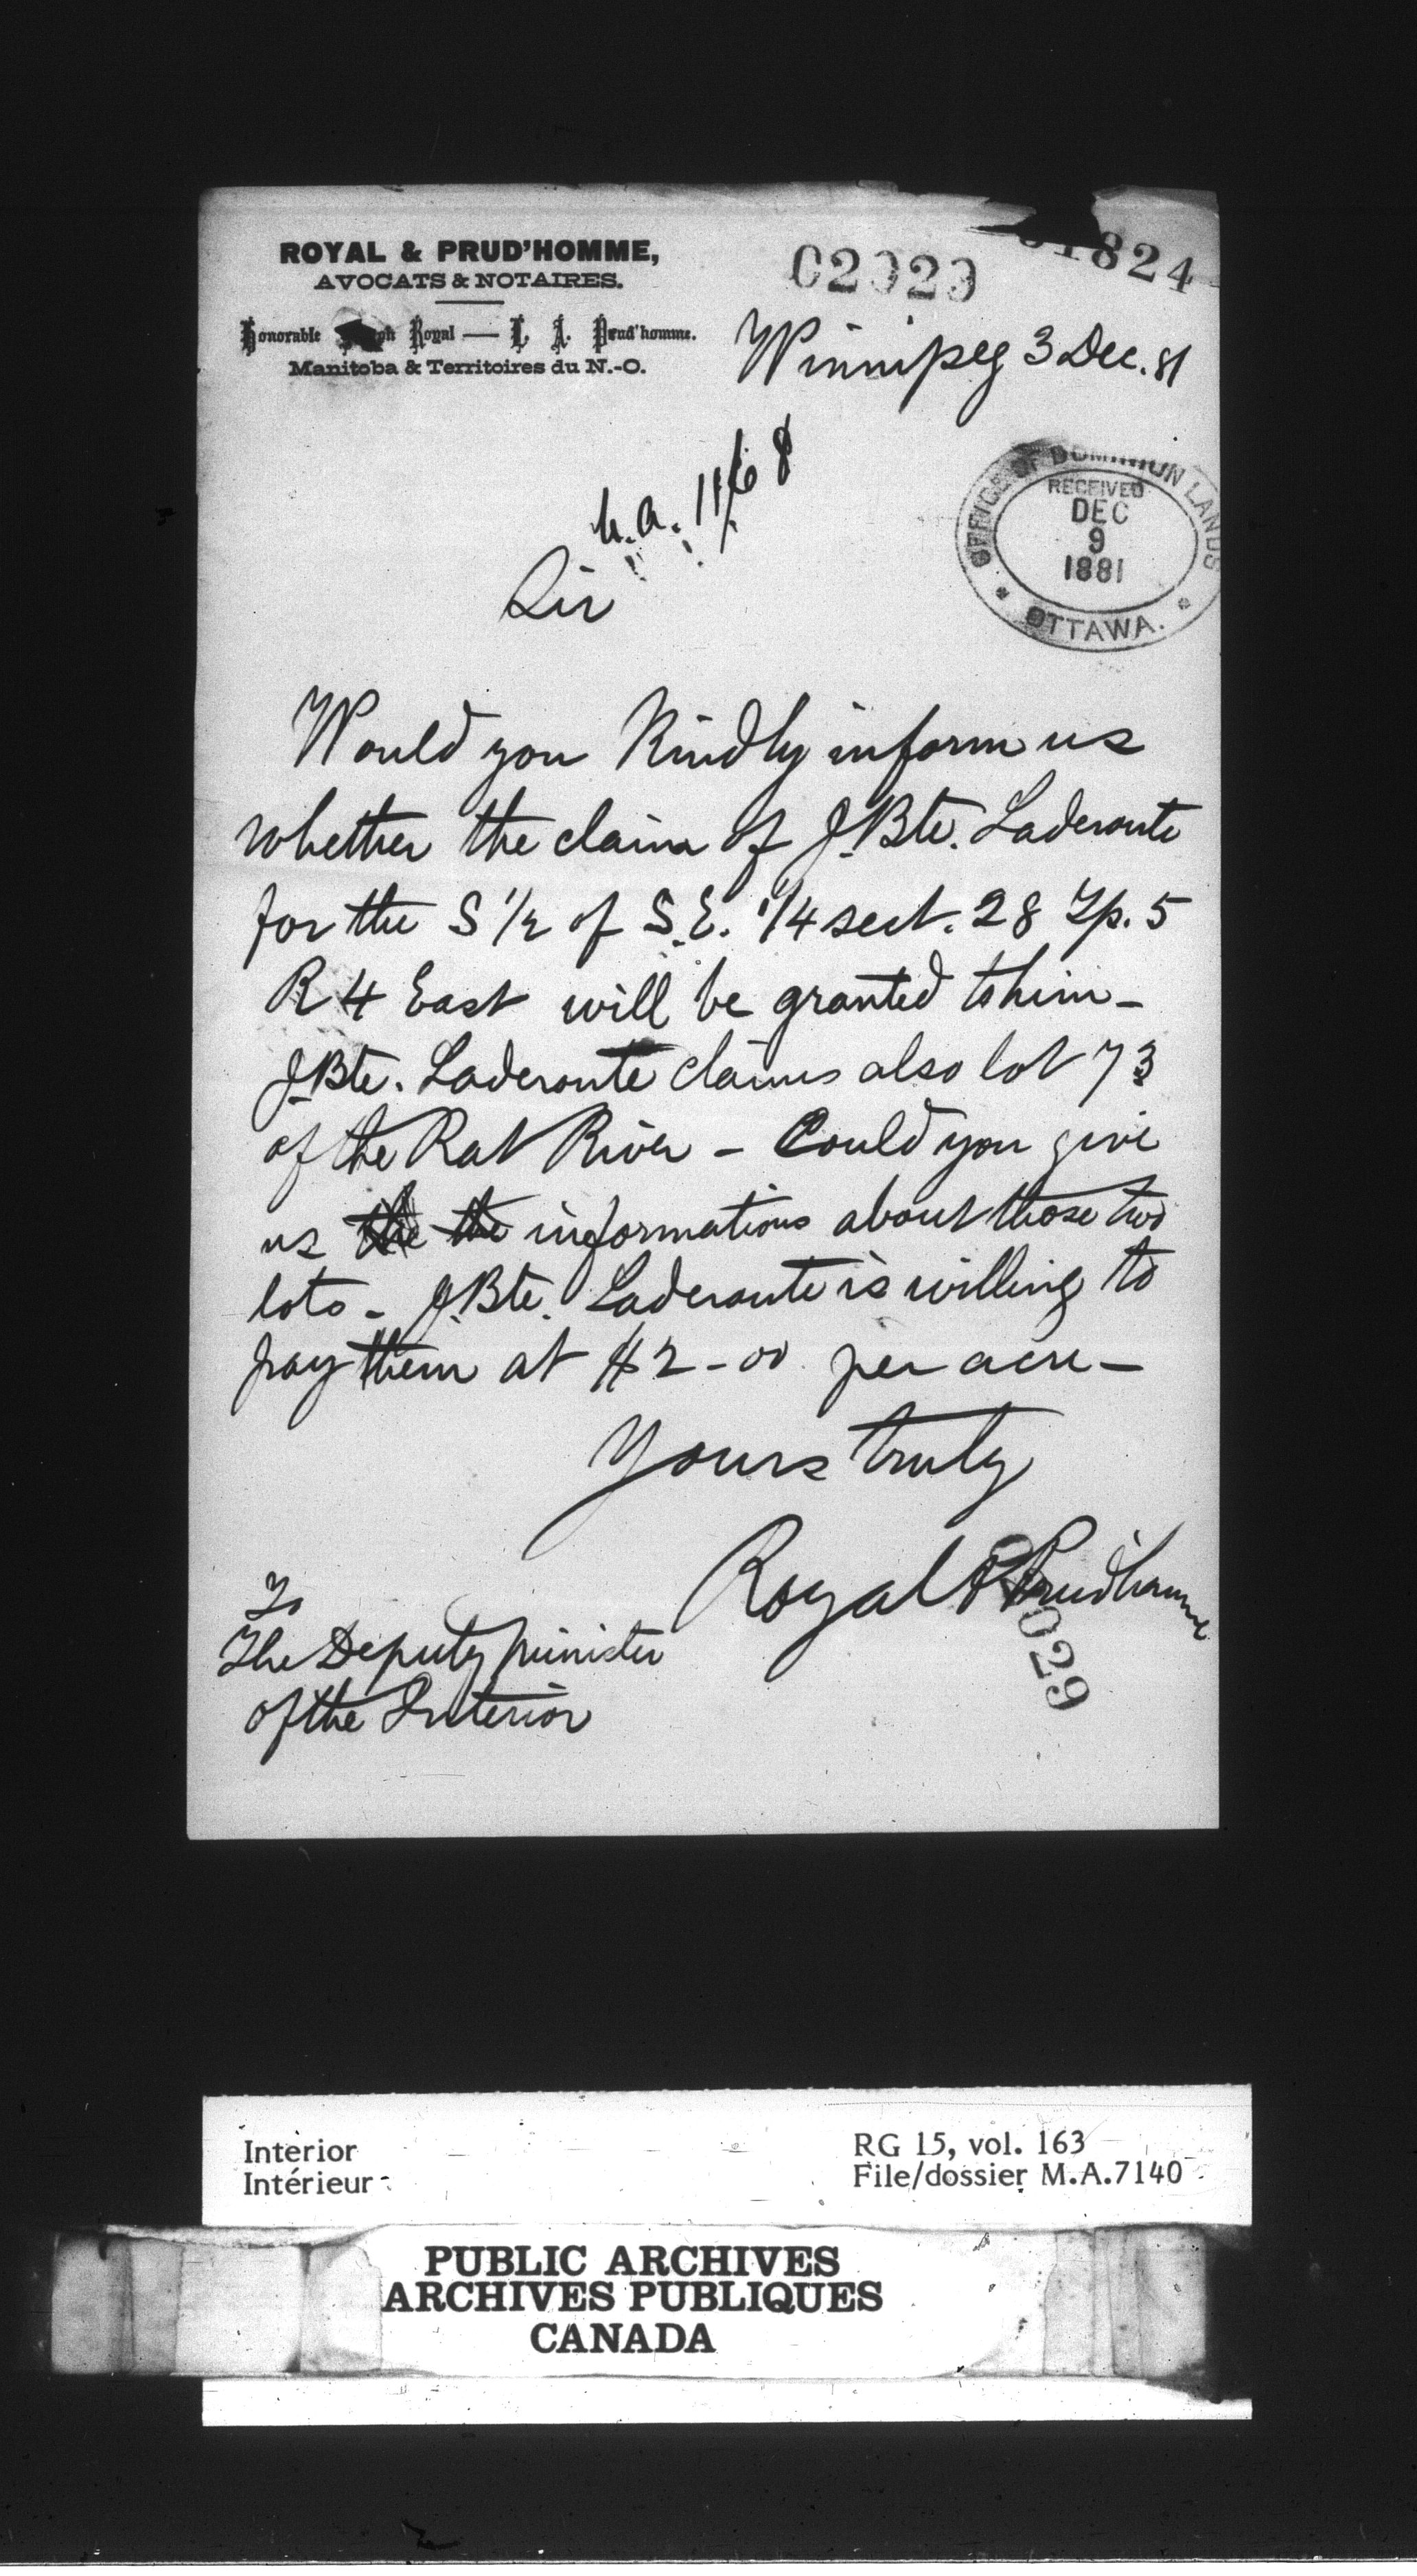 ROYAL & PRUD'HOMME,
AVOCATS & NOTAIRES.
Honorable Royal — L. A. Prud'homme.
Manitoba & Territoires du N.-O.
02029
1824
Winnipeg 3 Dec. 81
OFFICE OF DOMINION LANDS
RECEIVED
DEC
9
1881
OTTAWA.
Sir
Would you Kindly inform us
whether the claim of J. Bte. Laderoute
for the S 1/2 of S.E. 1/4 sect. 28 Tp. 5
R 4 East will be granted to him –
J. Bte. Laderoute claims also lot 73
of the Rat River – Could you give
us the the informations about those two
lots – J. Bte. Laderoute is willing to
pay them at $2-00 per acre –
Yours truly
Royal & Prudhomme
029
To
The Deputy Minister
of the Interior
Interior
Intérieur
RG 15, vol. 163
File/dossier M.A.7140
PUBLIC ARCHIVES
ARCHIVES PUBLIQUES
CANADA